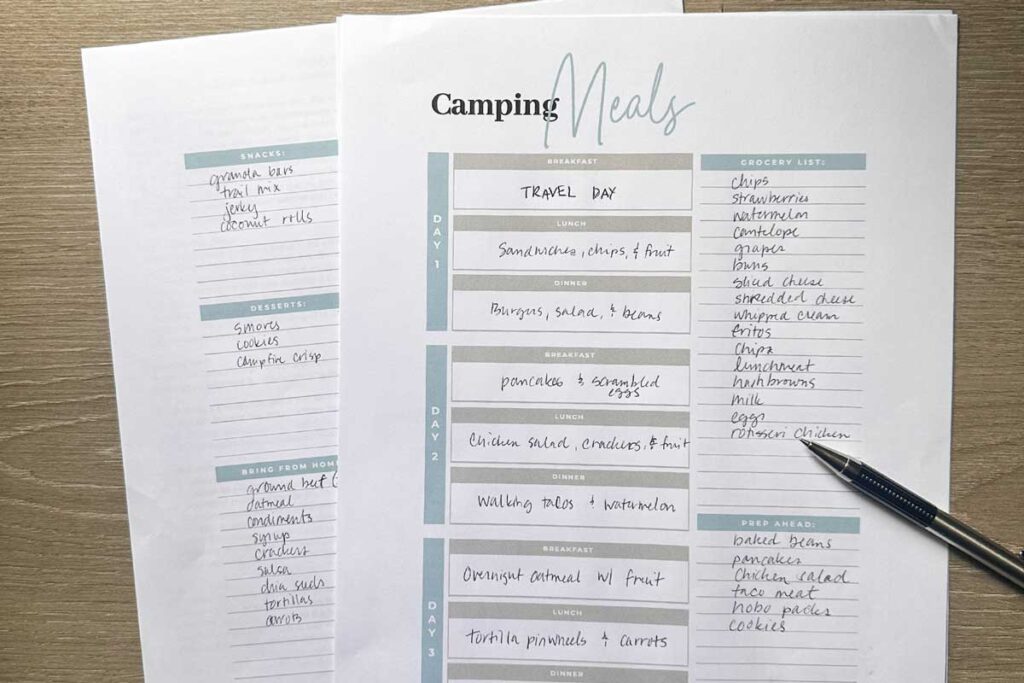 SNACKS:
granola bars
trail mix
jerky
coconut rolls
DESSERTS:
smores
cookies
campfire crisp
BRING FROM HOM
ground beef (
oatmeal
condiments
syrup
crackers
salsa
chia seeds
tortillas
carrots
Camping Meals
DAY 1
BREAKFAST
TRAVEL DAY
LUNCH
Sandwiches, chips, & fruit
DINNER
Burgers, salad, & beans
DAY 2
BREAKFAST
pancakes & scrambled
eggs
LUNCH
Chicken salad, crackers, & fruit
DINNER
Walking tacos & watermelon
DAY 3
BREAKFAST
Overnight oatmeal w/ fruit
LUNCH
tortilla pinwheels & carrots
DINNER
GROCERY LIST:
chips
strawberries
watermelon
cantelope
grapes
buns
sliced cheese
shredded cheese
whipped cream
fritos
chipz
lunchmeat
hashbrowns
milk
eggs
rotisseri chicken
PREP AHEAD:
baked beans
pancakes
chicken salad
taco meat
hobo packs
cookies